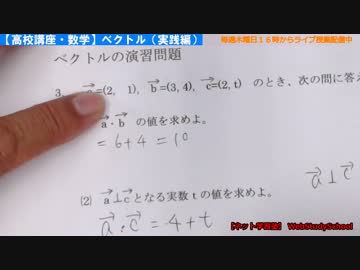 【高校講座・数学】ベクトル（実践編）
毎週木曜日16時からライブ授業配信中
ベクトルの演習問題
3. a→=(2, 1), b→=(3, 4), c→=(2, t) のとき、次の問に答え
a→・b→ の値を求めよ。
= 6 + 4 = 10
(2) a→⊥c→となる実数 t の値を求めよ。
a→⊥c→
a→・c→ = 4 + t
【ネット学習塾】 WebStudySchool